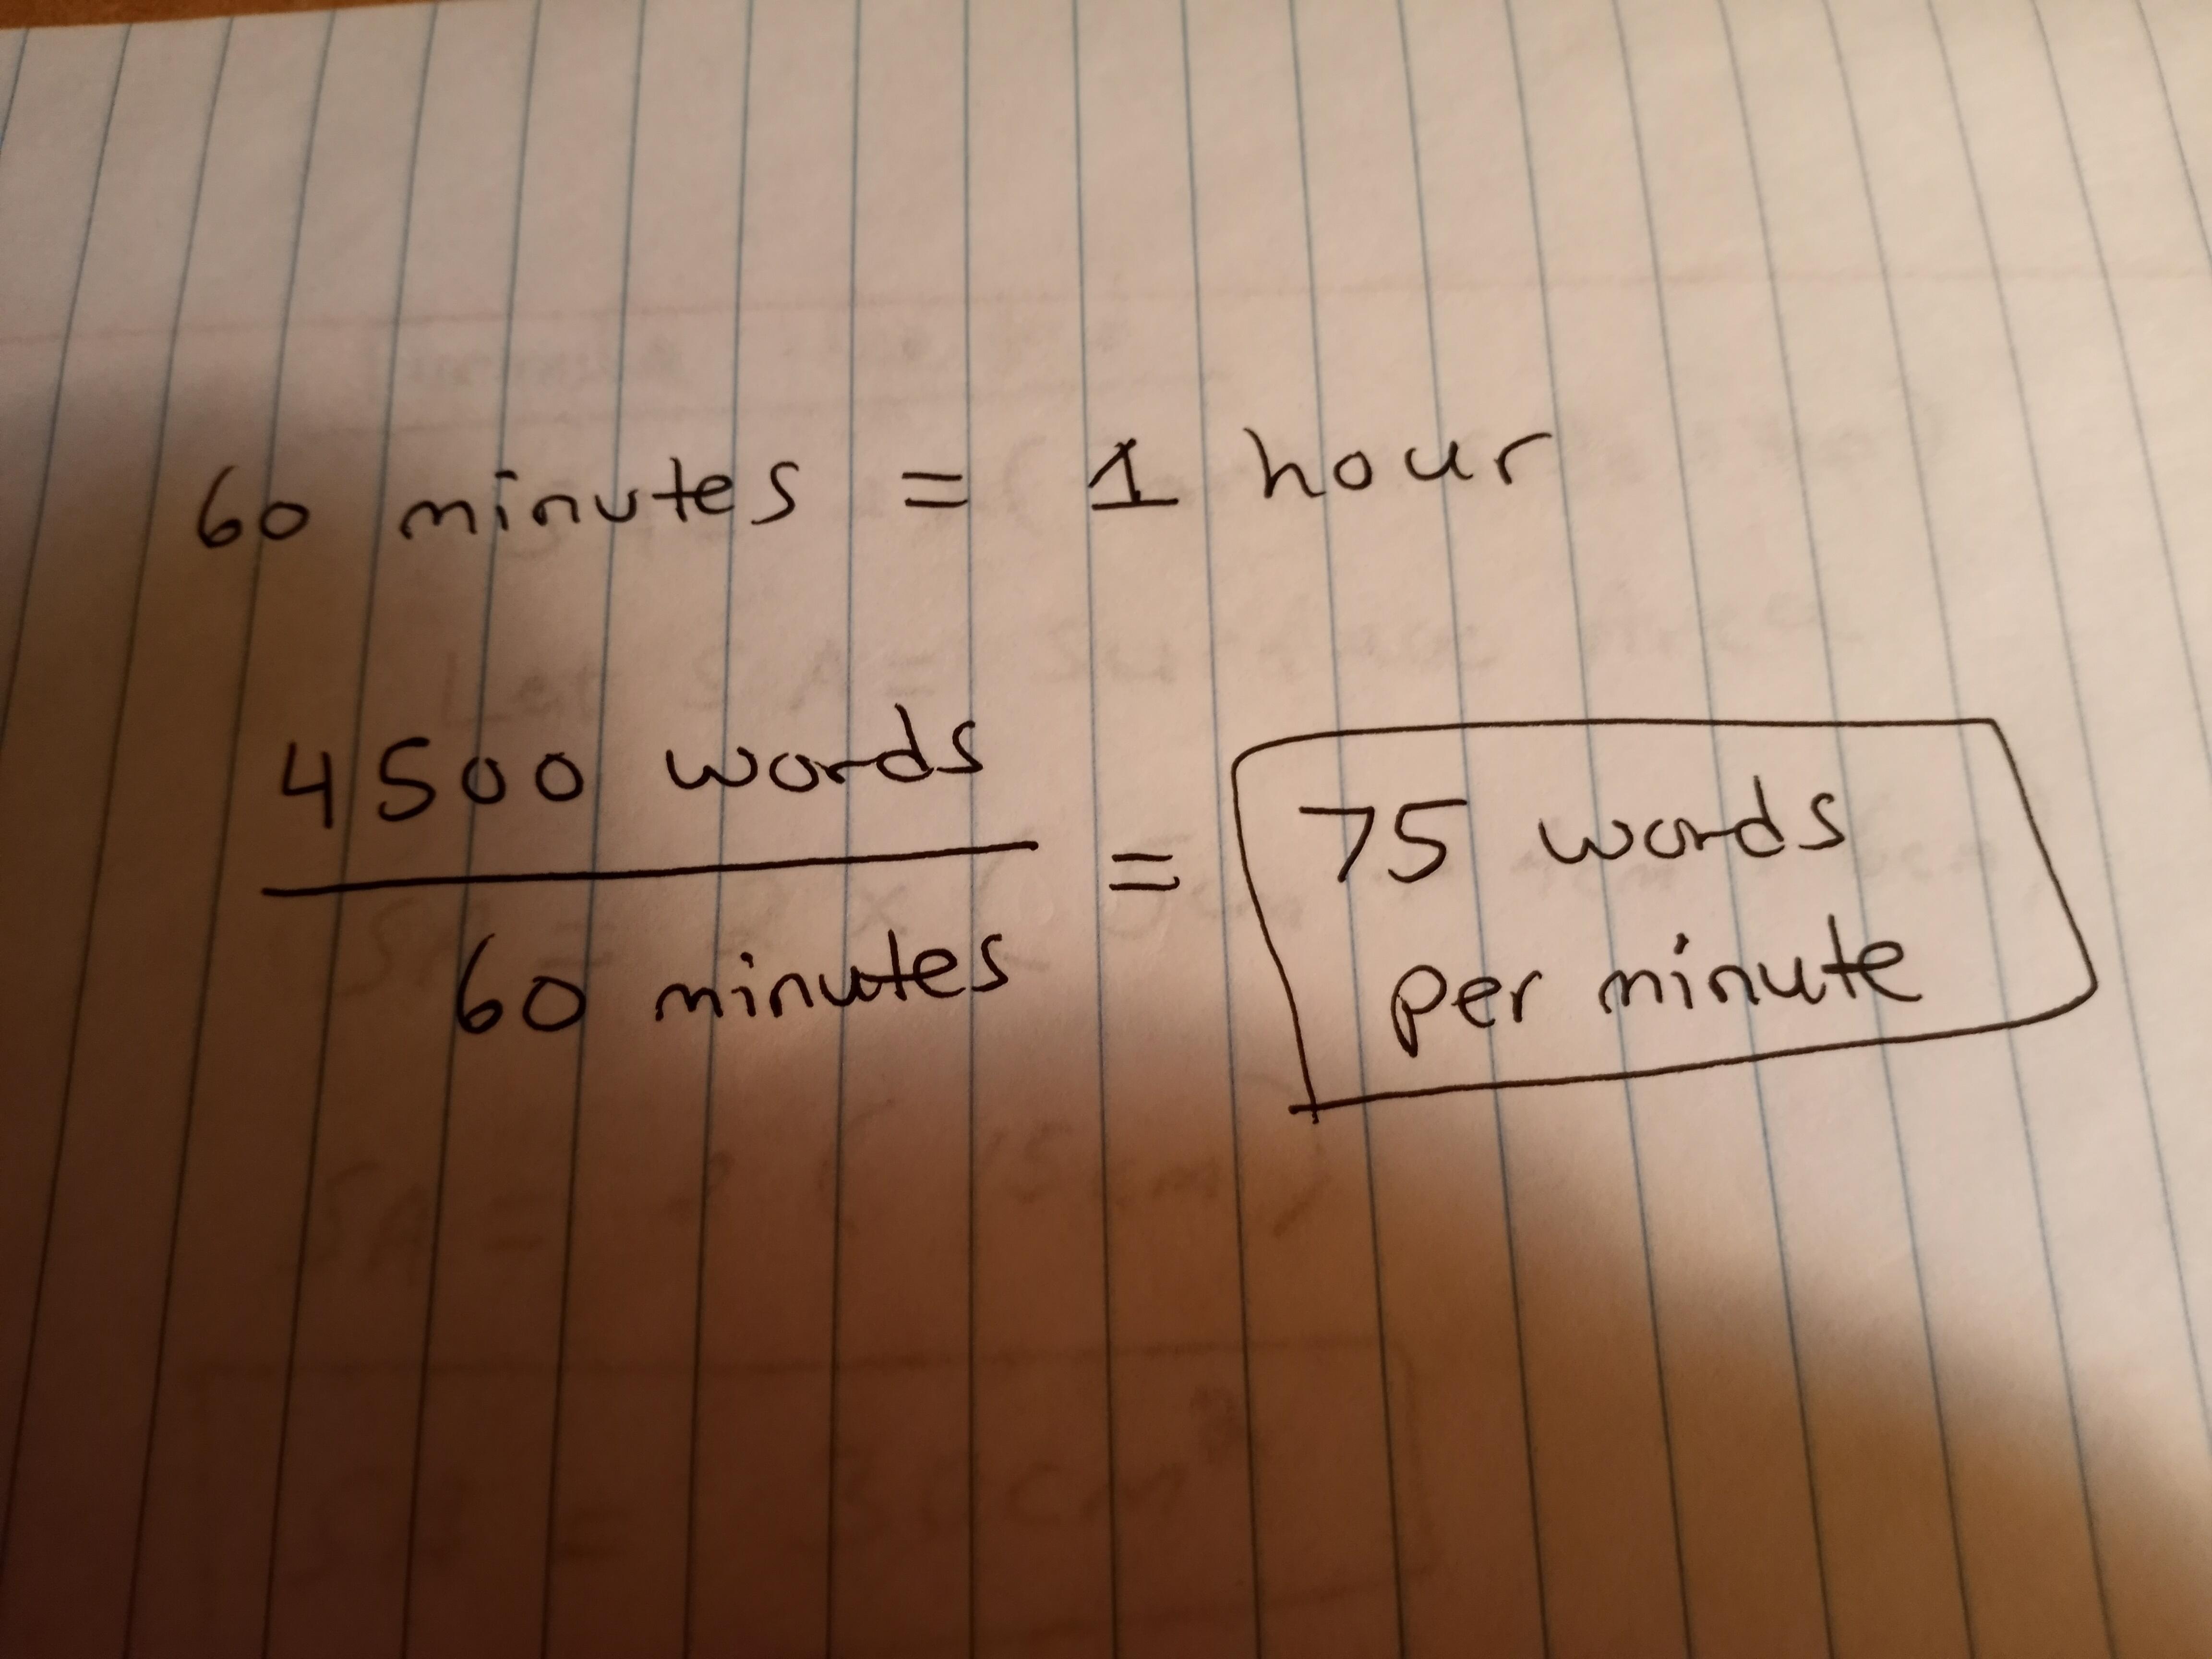 60 minutes = 1 hour
4500 words
60 minutes
=
75 words
per minute